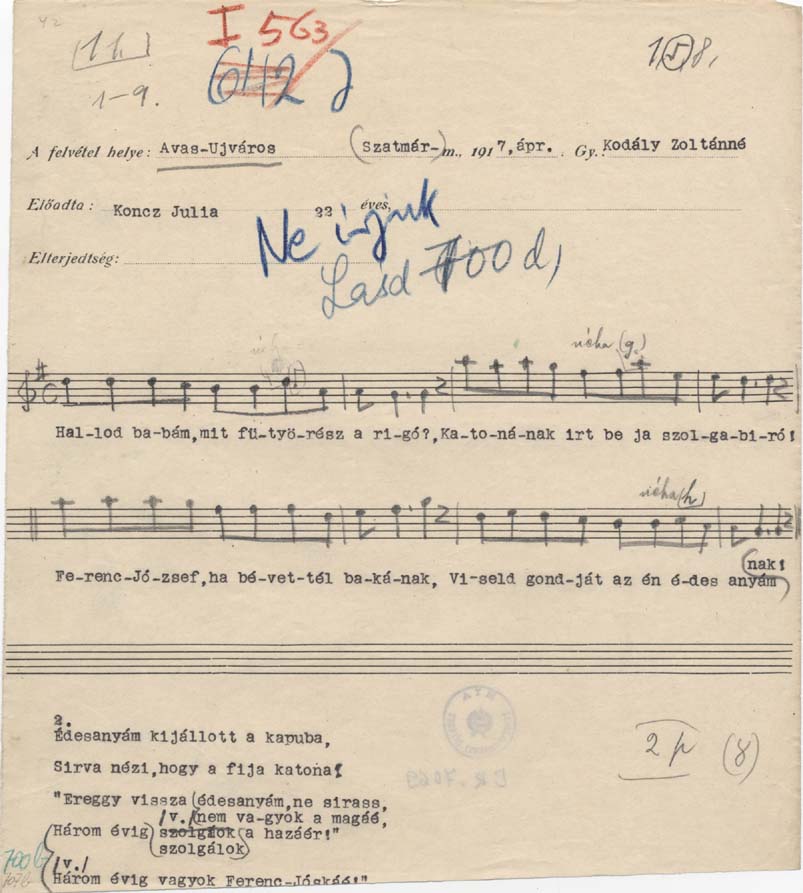 (11.)
I 563
1-9.
6412
1,5,8,
A felvétel helye: Avas-Ujváros (Szatmár-)m., 1917,ápr. Gy.: Kodály Zoltánné
Előadta: Koncz Julia 22 éves,
Ne írjuk
Elterjedtség:
Lásd 700 d,
néha (g.)
Hal-lod ba-bám,mit fü-työ-rész a ri-gó?,Ka-to-ná-nak irt be ja szol-ga-bi-ró!
néha (h)
nak!
Fe-renc-Jó-zsef,ha bé-vet-tél ba-ká-nak, Vi-seld gond-ját az én é-des anyám
2.
Édesanyám kijállott a kapuba,
Sirva nézi,hogy a fija katona!
"Ereggy vissza (édesanyám,ne sirass,
/v./ nem va-gyok a magáé,
Három évig szolgálok (a hazáér!"
szolgálok)
/v./
Három évig vagyok Ferenc-Jóskáé!"
2 p (8)
700 b